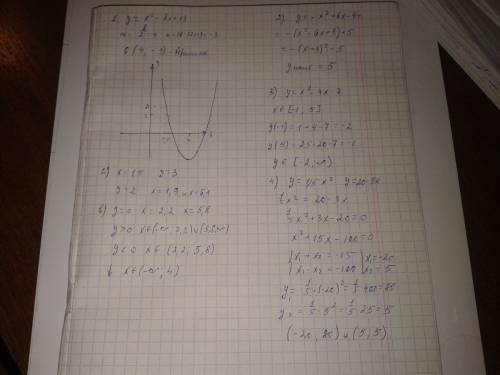 1. y = x² - 8x + 13
b(4, -3) - вершина
a) x = 1,5 y = 3
y = 2 x = 1,9 и x = 6,1
б) y = 0 x = 2,2 x = 5,8
y > 0
y < 0 x ∈ (2,2; 5,8)
x ∈ (-∞; 4)
2) y = -x² + 6x - 4 =
= -(x² - 6x + 9) + 5
= -(x - 3)² + 5
y наиб = 5
3) y = x² - 4x - 7
x ∈ [-1; 5]
y(-1) = 1 + 4 - 7 = -2
y(5) = 25 - 20 - 7 = -2
4) y = 1/5 x² y = 20 - 3x
1/5 x² = 20 - 3x
1/5 x² + 3x - 20 = 0
x² + 15x - 100 = 0
x₁ + x₂ = -15 x₁ = -20
x₁ · x₂ = -100 x₂ = 5
y₁ = 1/5 · (-20)² = 1/5 · 400 = 80
y₂ = 1/5 · 5² = 1/5 · 25 = 5
(-20; 80) и (5; 5)